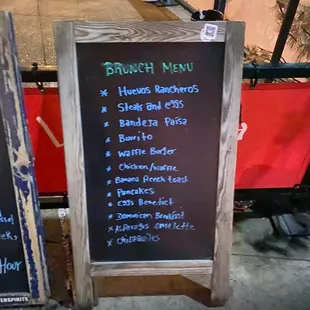 BRUNCH MENU
* Huevos Rancheros
* Steaks and eggs
* Bandeja Paisa
* Burrito
* Waffle Burger
* Chicken/waffle
* Banana french toast
* Pancakes
* Eggs Benedict
* Dominican Breakfast
* Asparagus omelette
* chilaquiles
Hour